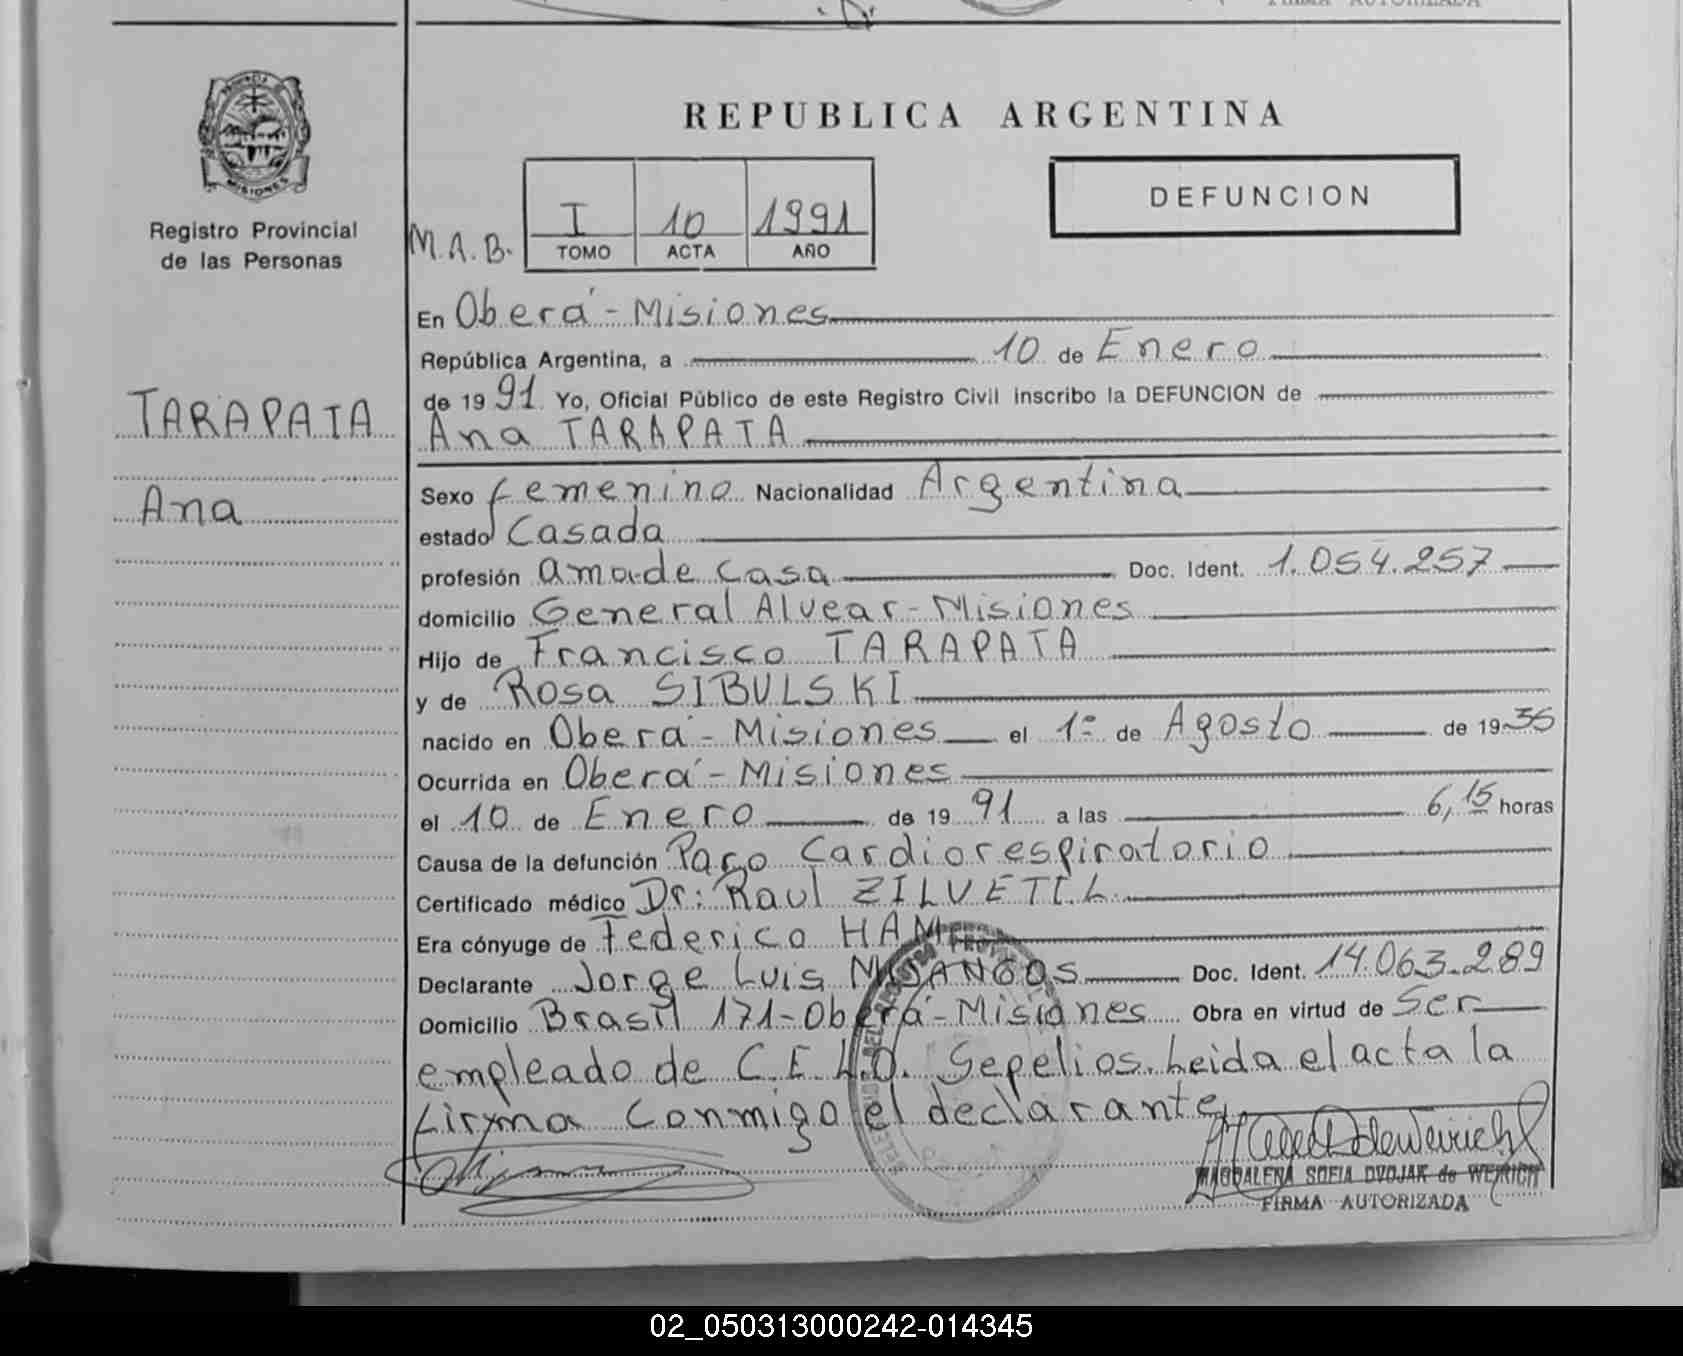 FIRMA AUTORIZADA
MISIONES
Registro Provincial
de las Personas
TARAPATA
Ana
REPUBLICA ARGENTINA
M.A.B.
I 10 1991
TOMO ACTA AÑO
DEFUNCION
En Oberá - Misiones
República Argentina, a 10 de Enero
de 1991 Yo, Oficial Público de este Registro Civil inscribo la DEFUNCION de
Ana TARAPATA
Sexo femenino Nacionalidad Argentina
estado Casada
profesión ama de casa Doc. Ident. 1.054.257
domicilio General Alvear - Misiones
Hijo de Francisco TARAPATA
y de Rosa SIBULSKI
nacido en Oberá - Misiones el 1º de Agosto de 1936
Ocurrida en Oberá - Misiones
el 10 de Enero de 1991 a las 6,15 horas
Causa de la defunción Paro Cardiorespiratorio
Certificado médico Dr: Raul ZILVETI.L.
Era cónyuge de Federico HAM
Declarante Jorge Luis MIJANGOS Doc. Ident. 14.063.289
Domicilio Brasil 171 - Oberá - Misiones Obra en virtud de Ser
empleado de C.E.L.O. Sepelios. Leida el acta la
firma conmigo el declarante
MAGDALENA SOFIA DVOJAK de WEIRICH
FIRMA AUTORIZADA
02_050313000242-014345